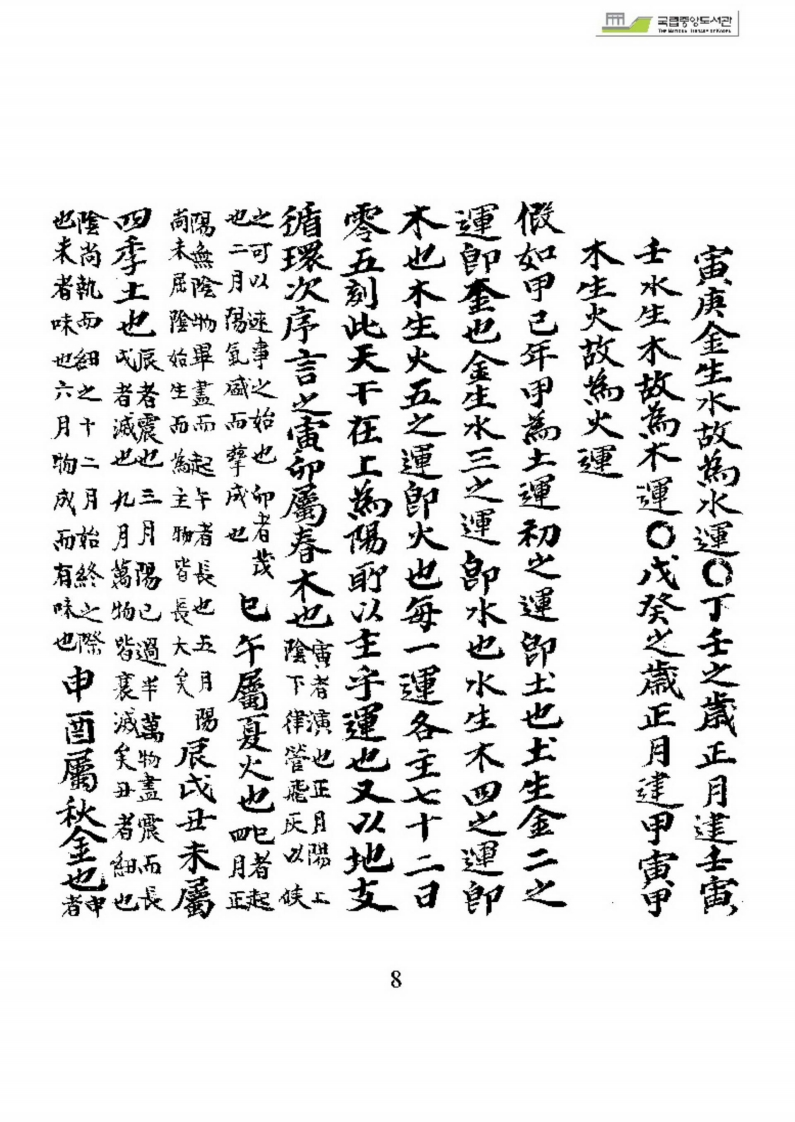 국립중앙도서관
THE NATIONAL LIBRARY OF KOREA
寅庚金生水故為水運〇丁壬之歲正月建壬寅
壬水生木故為木運〇戊癸之歲正月建甲寅甲
木生火故為火運
假如甲己年甲為土運初之運卽土也土生金二之
運卽金也金生水三之運卽水也水生木四之運卽
木也木生火五之運卽火也每一運各主七十二日
零五刻此天干在上為陽所以主乎運也又以地支
循環次序言之寅卯屬春木也寅者演也正月陽上陰下律管飛灰以候
之可以速事之始也卯者茂也二月陽氣盛而孳成也巳午屬夏火也巳者起四月正
陽無陰物畢盡而起午者長也五月陽尚未屈陰始生而為主物皆長大矣辰戌丑未屬
四季土也辰者震也三月陽已過半萬物盡震而長戌者滅也九月萬物皆衰滅矣丑者細也
陰尚執而細之十二月始終之際也未者味也六月物成而有味也申酉屬秋金也申者
8